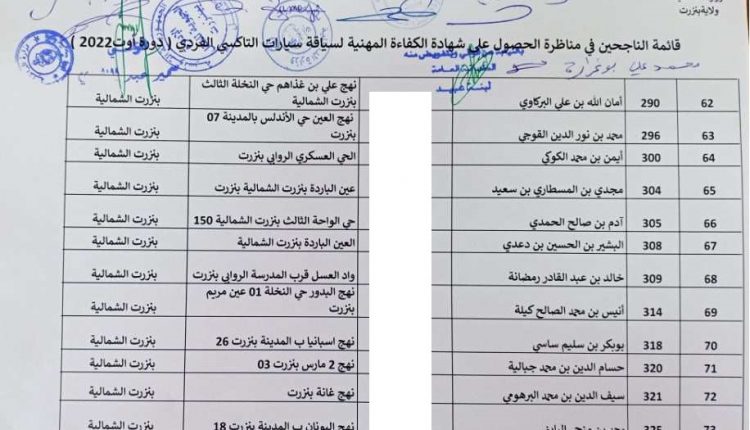 ولاية بنزرت
قائمة الناجحين في مناظرة الحصول على شهادة الكفاءة المهنية لسياقة سيارات التاكسي الفردي ( دورة اوت2022 )
محمد علي بوغرارة
62 290 أمان الله بن علي البركاوي نهج علي بن غذاهم حي النخلة الثالث بنزرت الشمالية بنزرت الشمالية
63 296 محمد بن نور الدين القوجي نهج العين حي الأندلس بالمدينة 07 بنزرت بنزرت الشمالية
64 300 أيمن بن محمد الكوكي الحي العسكري الروابي بنزرت بنزرت الشمالية
65 304 مجدي بن المسطاري بن سعيد عين الباردة بنزرت الشمالية بنزرت بنزرت الشمالية
66 305 آدم بن صالح الحمدي حي الواحة الثالث بنزرت الشمالية 150 بنزرت الشمالية
67 308 البشير بن الحسين بن دعدي العين الباردة بنزرت الشمالية بنزرت الشمالية
68 309 خالد بن عبد القادر رمضانة واد العسل قرب المدرسة الروابي بنزرت بنزرت الشمالية
69 314 أنيس بن محمد الصالح كيلة نهج البدور حي النخلة 01 عين مريم بنزرت بنزرت الشمالية
70 318 بوبكر بن سليم ساسي نهج اسبانيا ب المدينة بنزرت 26 بنزرت الشمالية
71 320 حسام الدين بن محمد جبالية نهج 2 مارس بنزرت 03 بنزرت الشمالية
72 321 سيف الدين بن محمد البرهومي نهج غانة بنزرت بنزرت الشمالية
73 325 نهج اليونان ب المدينة بنزرت 18 بنزرت الشمالية